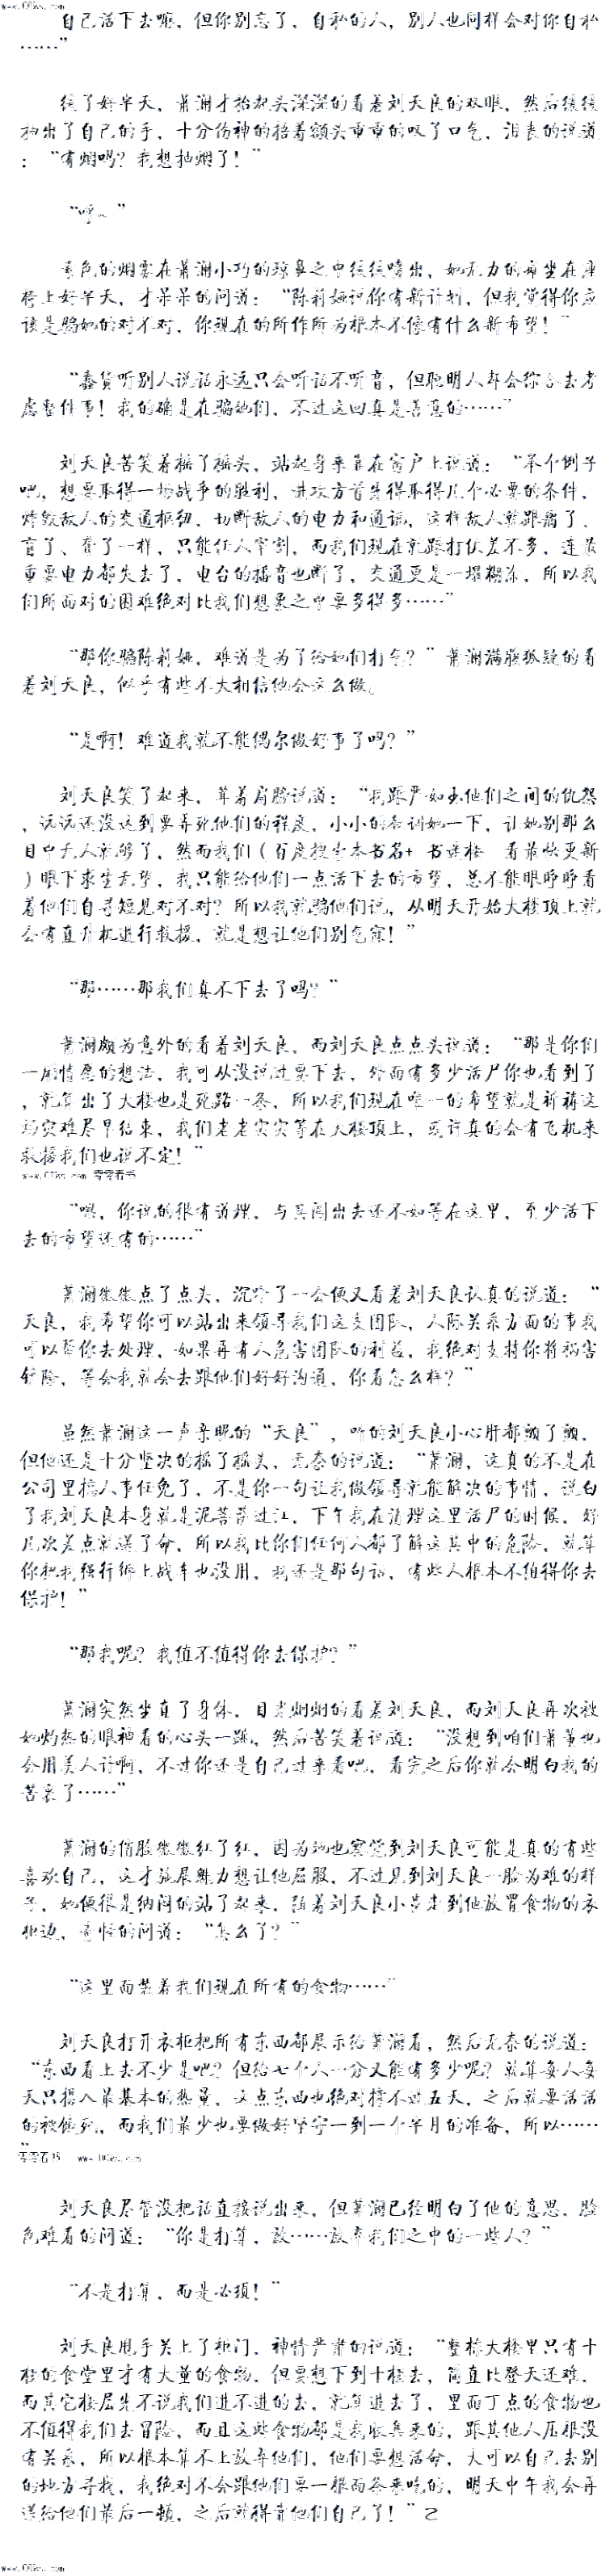 www.00ks.com
自己活下去嘛，但你别忘了，自私的人，别人也同样会对你自私
……”
缓了好半天，萧澜才抬起头深深的看着刘天良的双眼，然后缓缓
抽出了自己的手，十分伤神的掐着额头重重的叹了口气，沮丧的说道
：“有烟吗？我想抽烟了！”
“呼~”
青色的烟雾在萧澜小巧的琼鼻之中缓缓喷出，她无力的瘫坐在座
椅上好半天，才呆呆的问道：“陈莉娅说你有新计划，但我觉得你应
该是骗她的对不对，你现在的所作所为根本不像有什么新希望！”
“蠢货听别人说话永远只会听话不听音，但聪明人却会综合去考
虑整件事！我的确是在骗她们，不过这回真是善意的……”
刘天良苦笑着摇了摇头，站起身来靠在窗户上说道：“举个例子
吧，想要取得一场战争的胜利，进攻方首先得取得几个必要的条件，
炸毁敌人的交通枢纽、切断敌人的电力和通讯，这样敌人就跟瘸了、
盲了、聋了一样，只能任人宰割，而我们现在就跟打仗差不多，连最
重要电力都失去了，电台的播音也断了，交通更是一塌糊涂，所以我
们所面对的困难绝对比我们想象之中要多得多……”
“那你骗陈莉娅，难道是为了给她们打气？”萧澜满腹狐疑的看
着刘天良，似乎有些不大相信他会这么做。
“是啊！难道我就不能偶尔做好事了吗？”
刘天良笑了起来，耸着肩膀说道：“我跟严如玉他们之间的仇怨
，远远还没达到要弄死他们的程度，小小的教训她一下，让她别那么
目中无人就够了，然而我们（百度搜索本书名+ 书迷楼 看最快更新
）眼下求生无望，我只能给他们一点活下去的希望，总不能眼睁睁看
着他们自寻短见对不对？所以我就骗他们说，从明天开始大楼顶上就
会有直升机进行救援，就是想让他们别气馁！”
“那……那我们真不下去了吗？”
萧澜颇为意外的看着刘天良，而刘天良点点头说道：“那是你们
一厢情愿的想法，我可从没说过要下去，外面有多少活尸你也看到了
，就算出了大楼也是死路一条，所以我们现在唯一的希望就是祈祷这
场灾难尽早结束，我们老老实实等在大楼顶上，或许真的会有飞机来
救援我们也说不定！”
www.00ks.com 零零看书
“嗯，你说的很有道理，与其闯出去还不如等在这里，至少活下
去的希望还有的……”
萧澜微微点了点头，沉吟了一会便又看着刘天良认真的说道：“
天良，我希望你可以站出来领导我们这支团队，人际关系方面的事我
可以帮你去处理，如果再有人危害团队的利益，我绝对支持你将祸害
铲除，等会我就会去跟他们好好沟通，你看怎么样？”
虽然萧澜这一声亲昵的“天良”，听的刘天良小心肝都颤了颤，
但他还是十分坚决的摇了摇头，无奈的说道：“萧澜，这真的不是在
公司里搞人事任免了，不是你一句让我做领导就能解决的事情，说白
了我刘天良本身就是泥菩萨过江，下午我在清理这里活尸的时候，好
几次差点就送了命，所以我比你们任何人都了解这其中的危险，就算
你把我强行绑上战车也没用，我还是那句话，有些人根本不值得你去
保护！”
“那我呢？我值不值得你去保护？”
萧澜突然坐直了身体，目光炯炯的看着刘天良，而刘天良再次被
她灼热的眼神看的心头一跳，然后苦笑着说道：“没想到咱们萧董也
会用美人计啊，不过你还是自己过来看吧，看完之后你就会明白我的
苦衷了……”
萧澜的俏脸微微红了红，因为她也察觉到刘天良可能是真的有些
喜欢自己，这才施展魅力想让他屈服，不过见到刘天良一脸为难的样
子，她便很是纳闷的站了起来，跟着刘天良小步走到他放置食物的衣
柜边，奇怪的问道：“怎么了？”
“这里面装着我们现在所有的食物……”
刘天良打开衣柜把所有东西都展示给萧澜看，然后无奈的说道：
“东西看上去不少是吧？但给七个人一分又能有多少呢？就算每人每
天只摄入最基本的热量，这点东西也绝对撑不过五天，之后就要活活
的被饿死，而我们最少也要做好坚守一到一个半月的准备，所以……
”
零零看书 www.00ks.com
刘天良尽管没把话直接说出来，但萧澜已经明白了他的意思，脸
色难看的问道：“你是打算，放……放弃我们之中的一些人？”
“不是打算，而是必须！”
刘天良甩手关上了柜门，神情严肃的说道：“整栋大楼里只有十
楼的食堂里才有大量的食物，但要想下到十楼去，简直比登天还难，
而其它楼层先不说我们进不进的去，就算进去了，里面丁点的食物也
不值得我们去冒险，而且这些食物都是我收集来的，跟其他人压根没
有关系，所以根本算不上放弃他们，他们要想活命，大可以自己去别
的地方寻找，我绝对不会跟他们要一根面条来吃的，明天中午我会再
送给他们最后一顿，之后就得靠他们自己了！”2
www.00ks.com